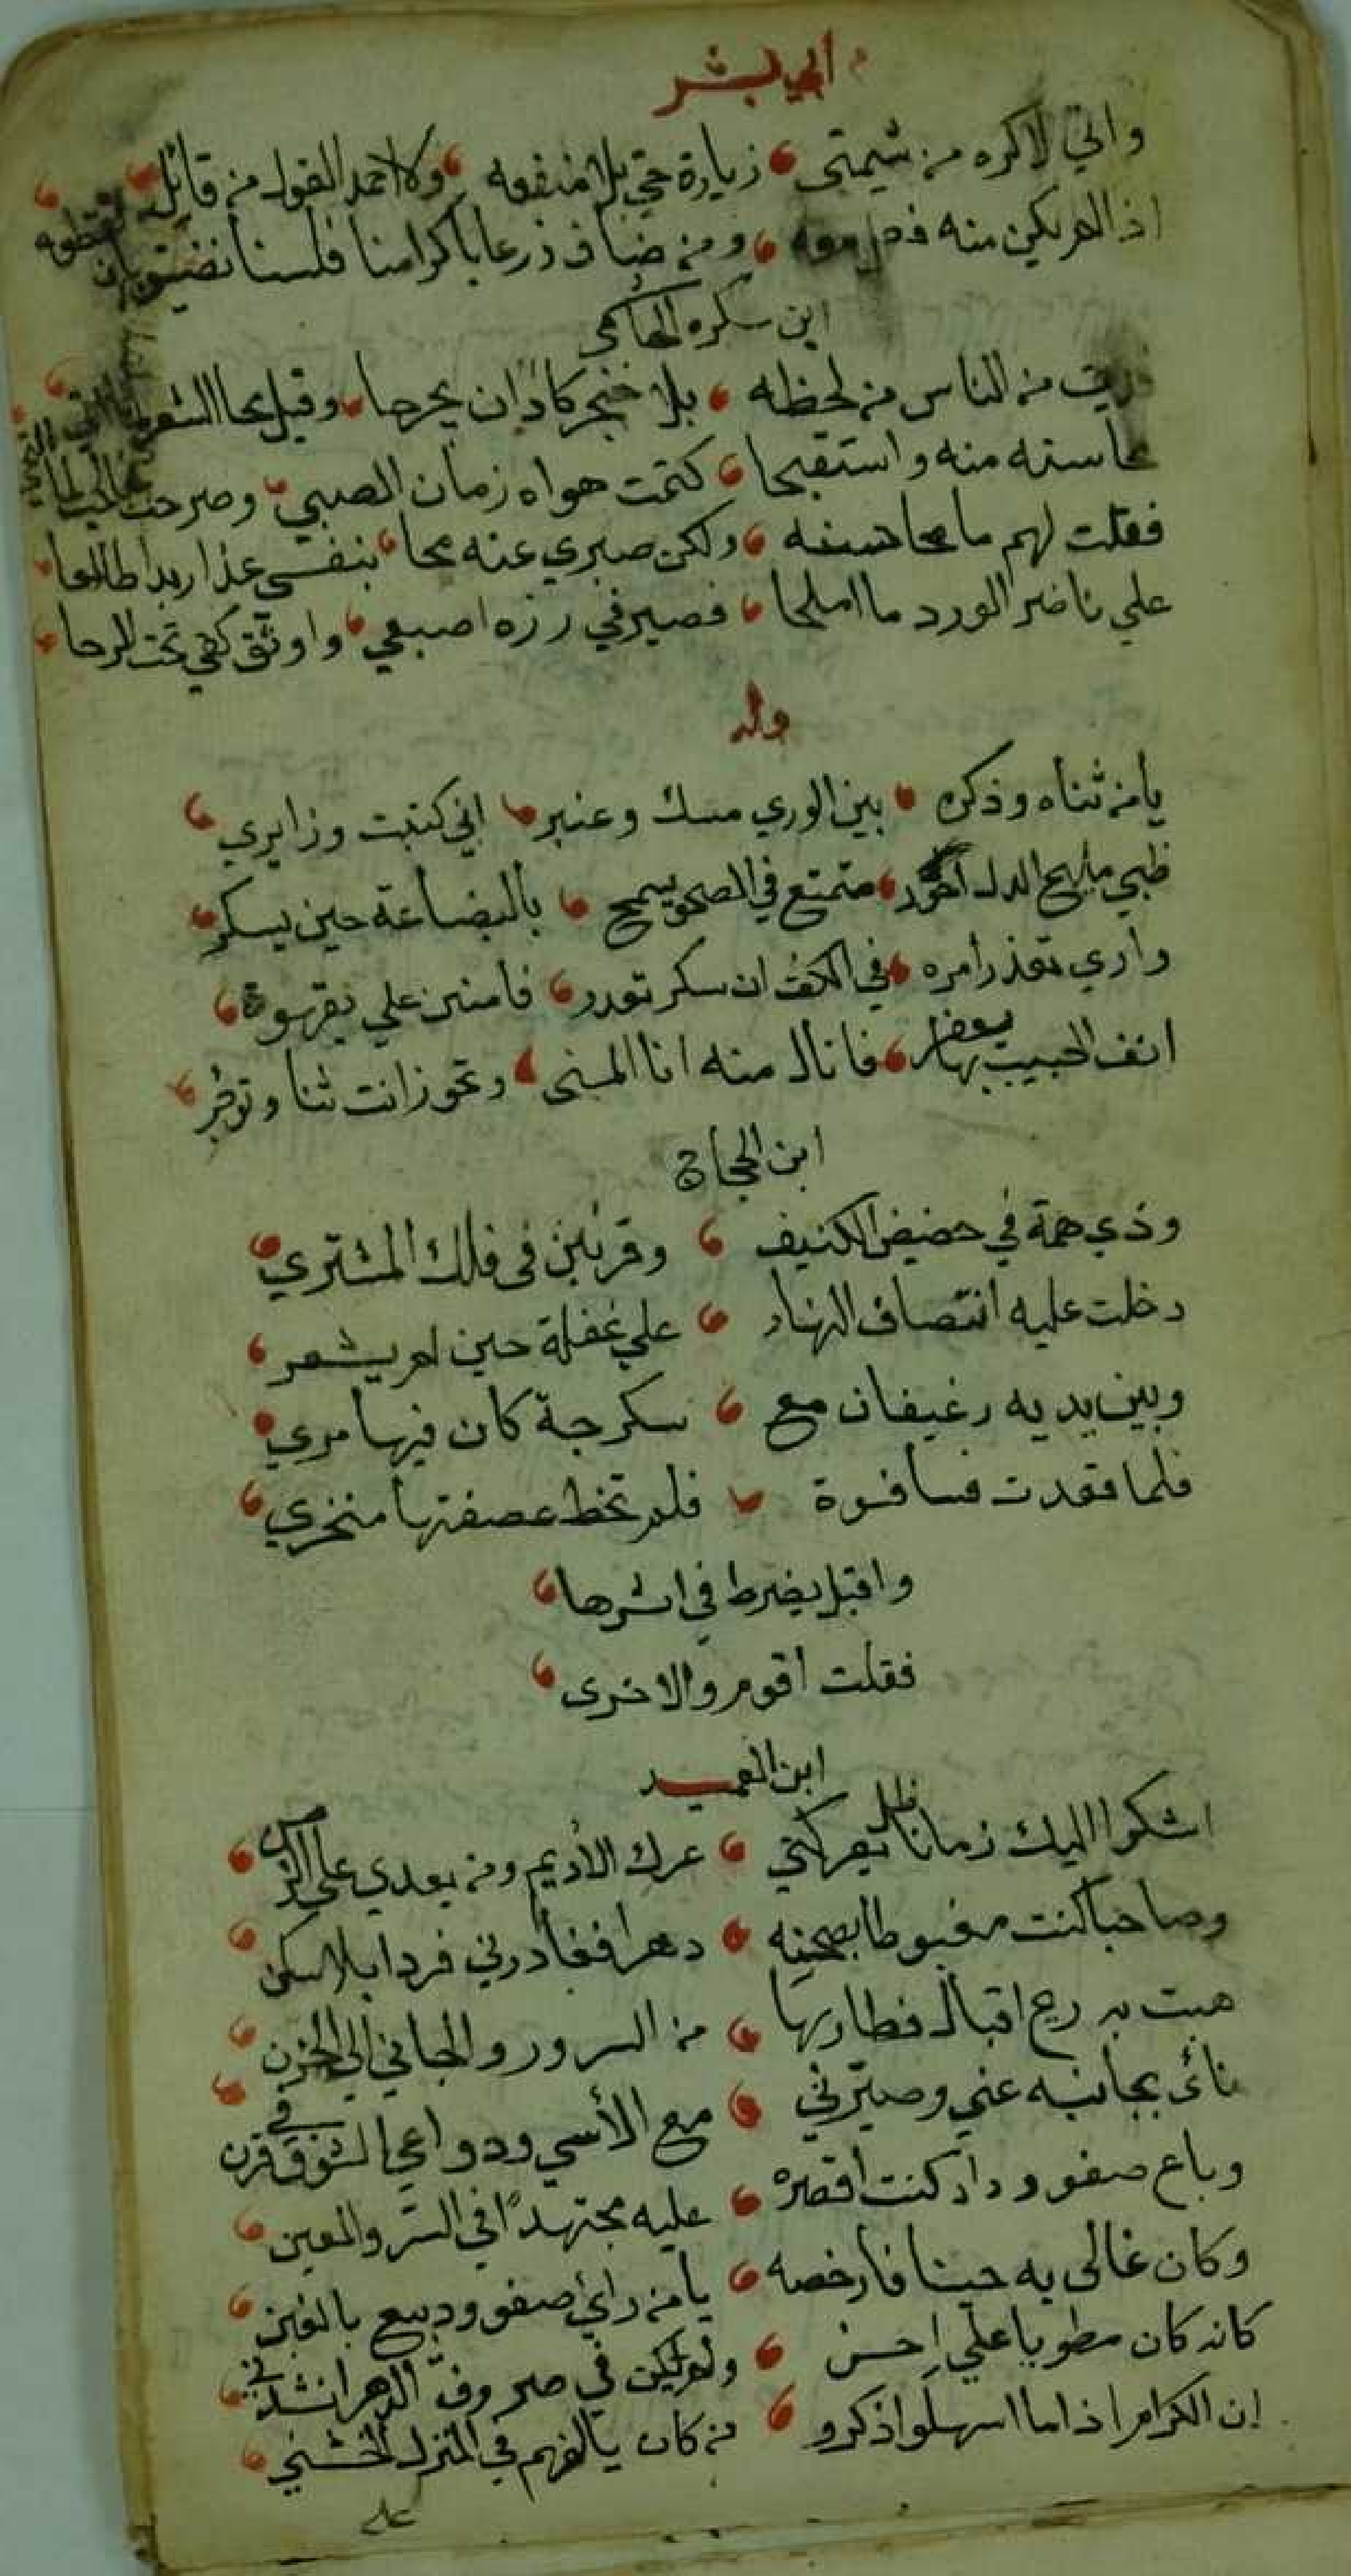 ابي بشر
واني لاكره من شيمتي زيارة حي بلا منفعه ولا احمد القول من قائل
اذا لم يكن منه فعل معه ومن ضاق ذرعا باكرامنا فلسنا نضيق بان نقطعه
ابن سكره الهاشمي
من الناس من لحظه بلا خنجر كاد ان يجرحا وقيل محا الشعر
محاسنه منه واستقبحا كتمت هواه زمان الصبي وصرحت
فقلت لهم ما محا حسنه ولكن صبري عنه محا بنفسي عذار بدا طالعا
علي ناضر الورد ما املحا فصير في رزه اصبعي واوثق كفي تحت الرحا
وله
يا من ثناه وذكره بين الوري مسك وعنبر اني كتبت وزايري
ظبي مليح الدل احور متمتع في الصحو يسمح بالبضاعة حين يسكر
واري تعذر امره في الكف ان سكر تعدر فامنن علي بقهوة
انف الحبيب بها يعفر فانال منه انا المنى وتحوز انت ثنا وتوجر
ابن الحجاج
وذي همة في حضيض الكنيف وقرنين في فلك المشتري
دخلت عليه انتصاف النهار علي غفلة حين لم يشعر
وبين يديه رغيفان مع سكرجة كان فيها مري
فلما قعدت فسا فسوة فلم تخط عصفتها منخري
واقبل يضرط في اثرها
فقلت اقوم والا خرى
ابن العميد
اشكوا اليك زمانا ظل يعركني عرك الاديم ومن يعدي علي الزمن
وصاحبا كنت مغبوطا بصحبته دهرا فغادرني فردا بلا سكن
هبت به ريح اقبال فطار بها من السرور والجاني الي الحزن
نائ بجانبه عني وصيرني مع الأسي ودواعي الشوق في قرن
وباع صفو وداد كنت اقصره عليه مجتهدا في السر والعين
وكان غالى به حينا فارخصه يا من رائ صفو ود بيع بالغبن
كانه كان مطويا علي احن ولم يكن في صروف الدهر انشدني
ان الكرام اذا ما اسهلوا ذكرو من كان يالفهم في المنزل الخشني
علي